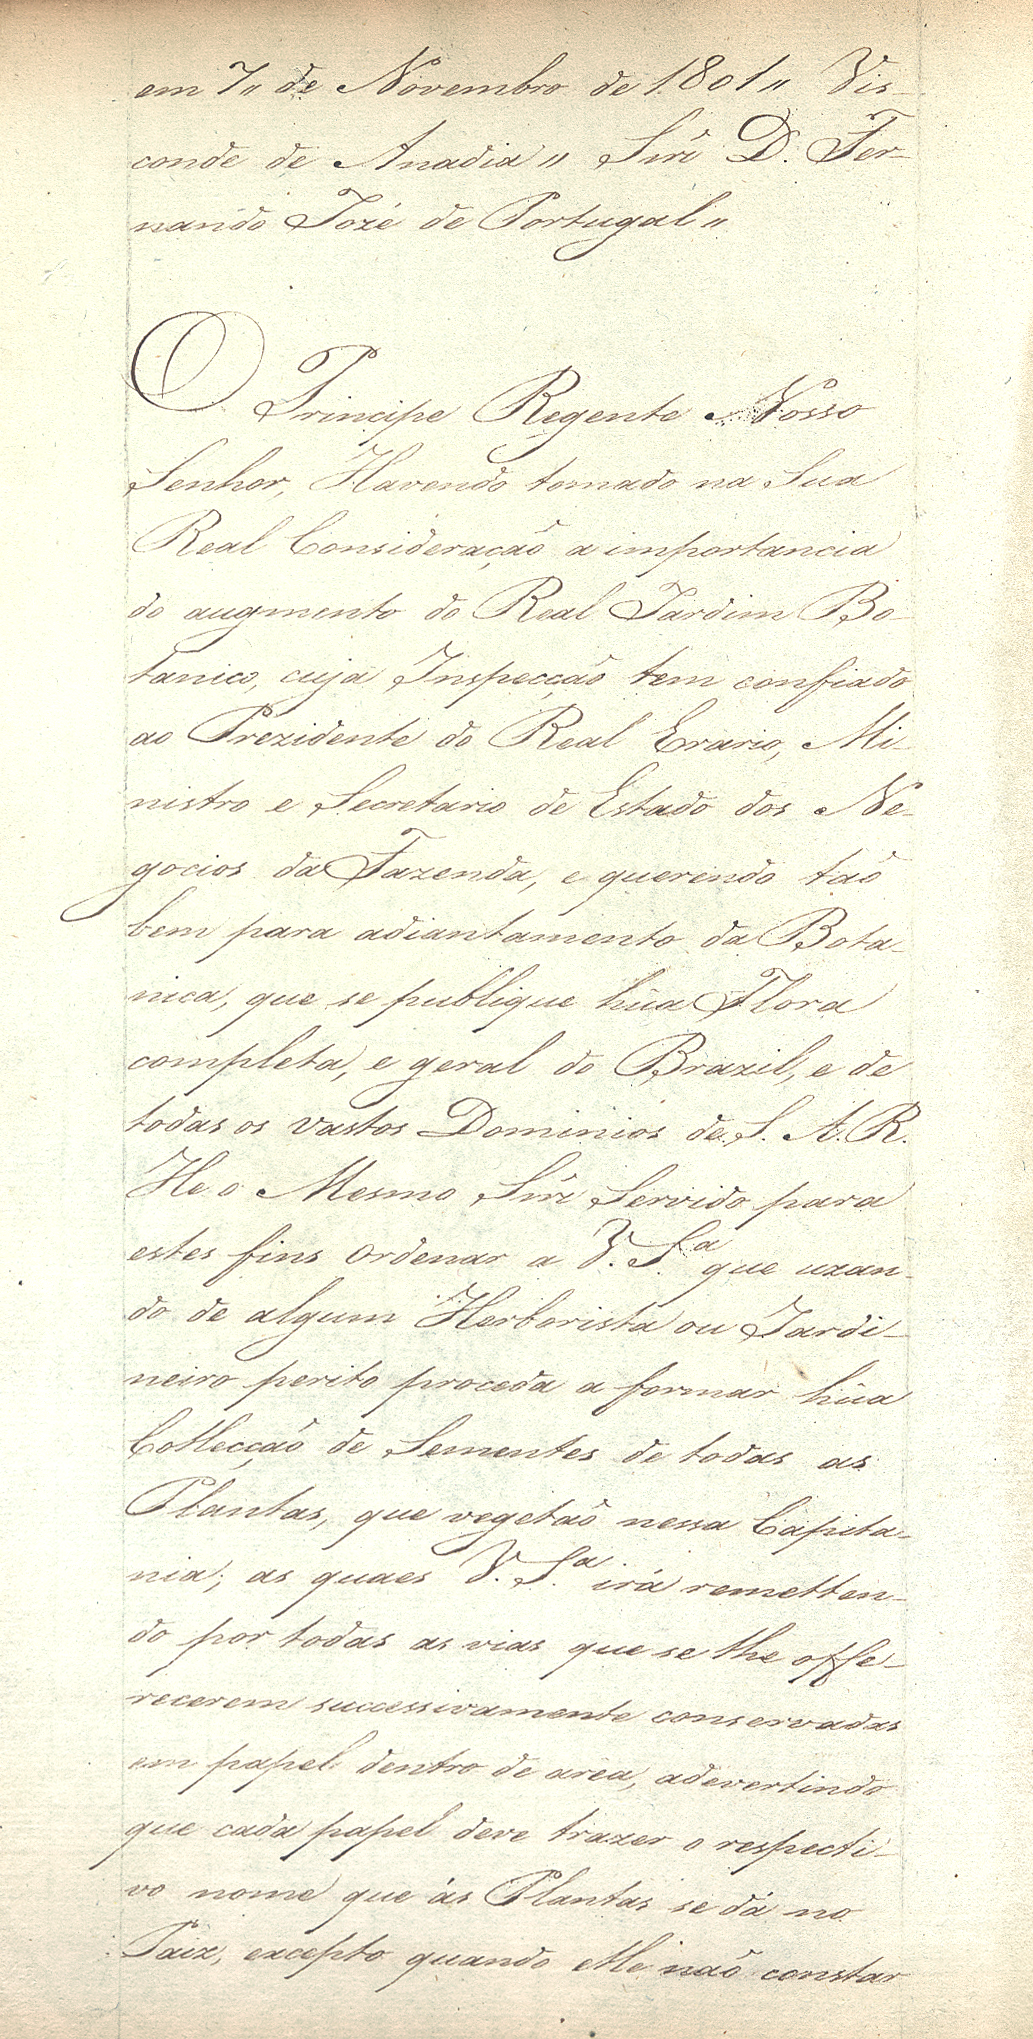 em 7,, de Novembro de 1801,, Vis-
conde de Anadia,, Snr̃ D. Fer-
nando Jozé de Portugal,,
O Principe Regente Nosso
Senhor, Havendo tomado na Sua
Real Consideração a importancia
do augmento do Real Jardim Bo-
tanico, cuja Inspecção tem confiado
ao Prezidente do Real Erario, Mi-
nistro e Secretario de Estado dos Ne-
gocios da Fazenda, e querendo taõ
bem para adiantamento da Bota-
nica, que se publique hũa Flora
completa, e geral do Brazil, e de
todas os vastos Dominios de S. A. R.
He o Mesmo Snr̃ Servido para
estes fins ordenar a V. Sª que uzan-
do de algum Herborista ou Jardi-
neiro perito proceda a formar hũa
Collecção de Sementes de todas as
Plantas, que vegetaõ nessa Capita-
nia; as quaes V. Sª irá remetten-
do por todas as vias que se lhe offe-
recerem successivamente conservadas
em papel dentro de area, adevertindo
que cada papel deve trazer o respecti-
vo nome que ás Plantas se dá no
Paiz, excepto quando elle naõ constar